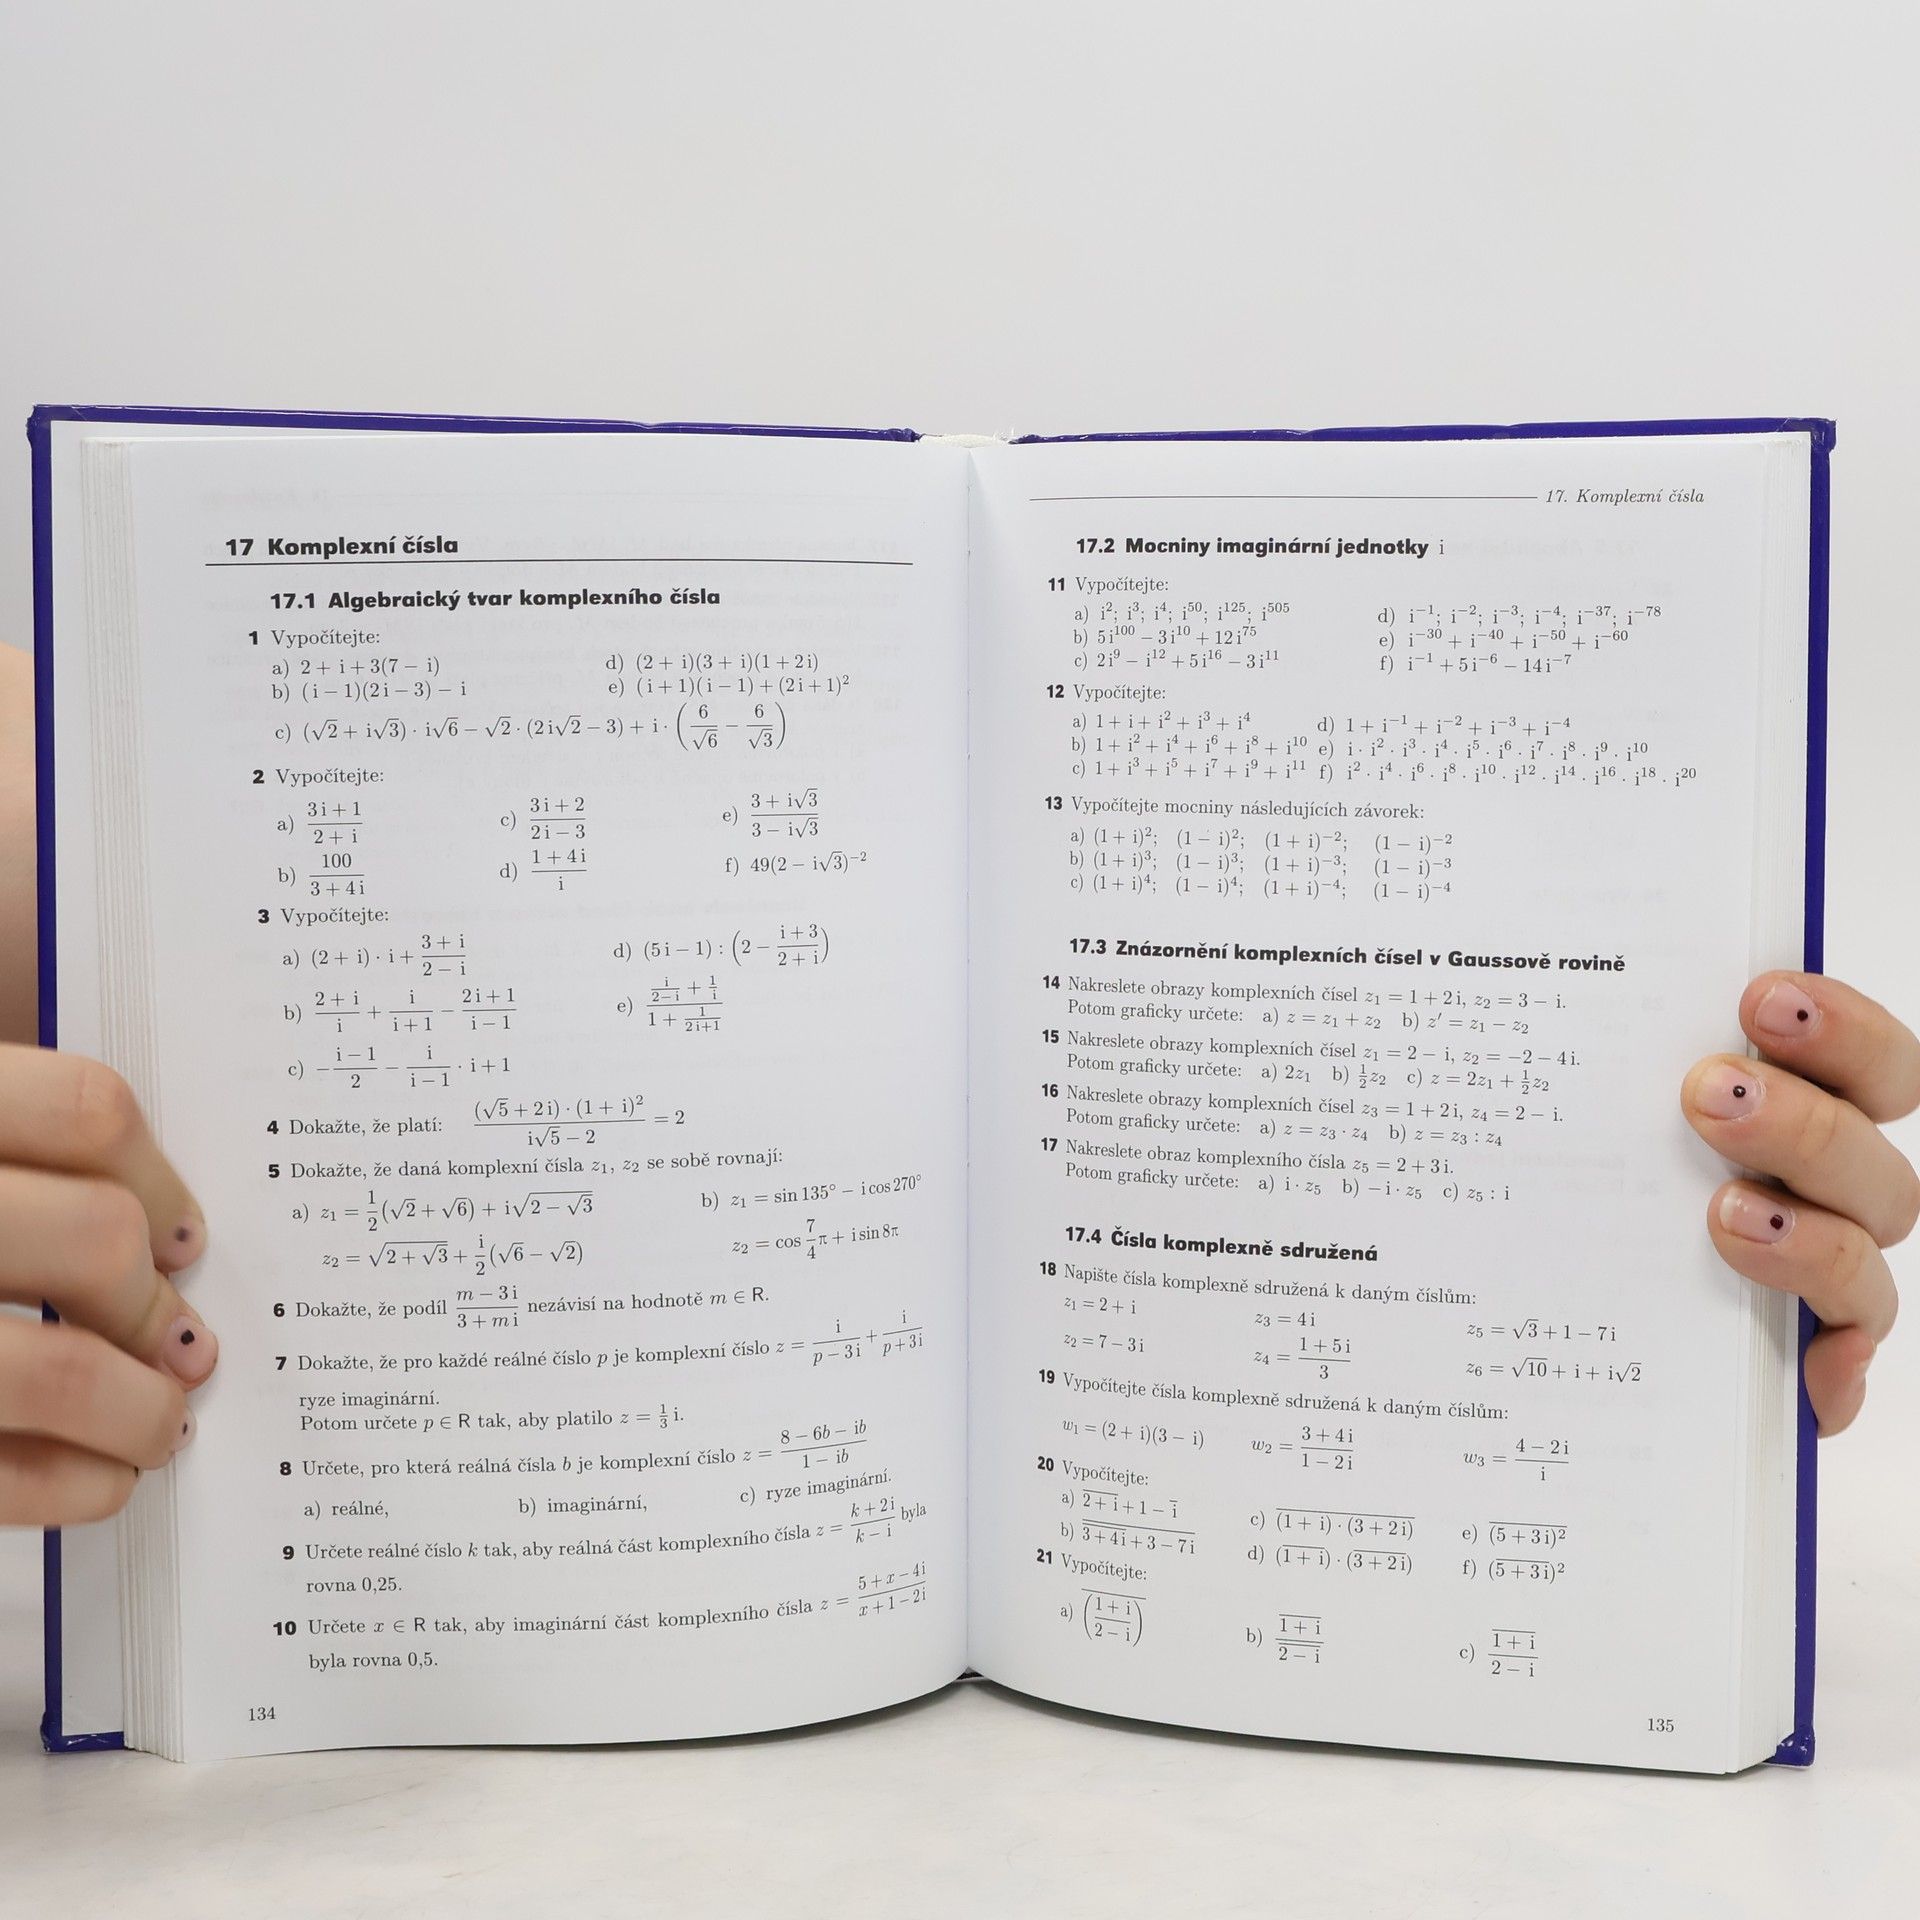 17 Komplexní čísla
17.1 Algebraický tvar komplexního čísla
1 Vypočítejte:
a) 2 + i + 3(7 − i) d) (2 + i)(3 + i)(1 + 2i)
b) (i − 1)(2i − 3) − i e) (i + 1)(i − 1) + (2i + 1)²
c) (√2 + i√3) · i√6 − √2 · (2i√2 − 3) + i · (6/√6 − 6/√3)
2 Vypočítejte:
a) (3i + 1)/(2 + i) c) (3i + 2)/(2i − 3) e) (3 + i√3)/(3 − i√3)
b) 100/(3 + 4i) d) (1 + 4i)/i f) 49(2 − i√3)⁻²
3 Vypočítejte:
a) (2 + i) · i + (3 + i)/(2 − i) d) (5i − 1) : (2 − (i + 3)/(2 + i))
b) (2 + i)/i + i/(i + 1) − (2i + 1)/(i − 1) e) (i/(2−i) + 1/i)/(1 + 1/(2i+1))
c) −(i − 1)/2 − i/(i − 1) · i + 1
4 Dokažte, že platí: ((√5 + 2i) · (1 + i)²)/(i√5 − 2) = 2
5 Dokažte, že daná komplexní čísla z₁, z₂ se sobě rovnají:
a) z₁ = 1/2(√2 + √6) + i√(2 − √3) b) z₁ = sin 135° − i cos 270°
z₂ = √(2 + √3) + i/2(√6 − √2) z₂ = cos 7/4 π + i sin 8π
6 Dokažte, že podíl (m − 3i)/(3 + mi) nezávisí na hodnotě m ∈ R.
7 Dokažte, že pro každé reálné číslo p je komplexní číslo z = i/(p − 3i) + i/(p + 3i)
ryze imaginární.
Potom určete p ∈ R tak, aby platilo z = 1/3 i.
8 Určete, pro která reálná čísla b je komplexní číslo z = (8 − 6b − ib)/(1 − ib)
a) reálné, b) imaginární, c) ryze imaginární.
9 Určete reálné číslo k tak, aby reálná část komplexního čísla z = (k + 2i)/(k − i) byla
rovna 0,25.
10 Určete x ∈ R tak, aby imaginární část komplexního čísla z = (5 + x − 4i)/(x + 1 − 2i)
byla rovna 0,5.
134
17. Komplexní čísla
17.2 Mocniny imaginární jednotky i
11 Vypočítejte:
a) i²; i³; i⁴; i⁵⁰; i¹²⁵; i⁵⁰⁵ d) i⁻¹; i⁻²; i⁻³; i⁻⁴; i⁻³⁷; i⁻⁷⁸
b) 5i¹⁰⁰ − 3i¹⁰ + 12i⁷⁵ e) i⁻³⁰ + i⁻⁴⁰ + i⁻⁵⁰ + i⁻⁶⁰
c) 2i⁹ − i¹² + 5i¹⁶ − 3i¹¹ f) i⁻¹ + 5i⁻⁶ − 14i⁻⁷
12 Vypočítejte:
a) 1 + i + i² + i³ + i⁴ d) 1 + i⁻¹ + i⁻² + i⁻³ + i⁻⁴
b) 1 + i² + i⁴ + i⁶ + i⁸ + i¹⁰ e) i · i² · i³ · i⁴ · i⁵ · i⁶ · i⁷ · i⁸ · i⁹ · i¹⁰
c) 1 + i³ + i⁵ + i⁷ + i⁹ + i¹¹ f) i² · i⁴ · i⁶ · i⁸ · i¹⁰ · i¹² · i¹⁴ · i¹⁶ · i¹⁸ · i²⁰
13 Vypočítejte mocniny následujících závorek:
a) (1 + i)²; (1 − i)²; (1 + i)⁻²; (1 − i)⁻²
b) (1 + i)³; (1 − i)³; (1 + i)⁻³; (1 − i)⁻³
c) (1 + i)⁴; (1 − i)⁴; (1 + i)⁻⁴; (1 − i)⁻⁴
17.3 Znázornění komplexních čísel v Gaussově rovině
14 Nakreslete obrazy komplexních čísel z₁ = 1 + 2i, z₂ = 3 − i.
Potom graficky určete: a) z = z₁ + z₂ b) z′ = z₁ − z₂
15 Nakreslete obrazy komplexních čísel z₁ = 2 − i, z₂ = −2 − 4i.
Potom graficky určete: a) 2z₁ b) 1/2 z₂ c) z = 2z₁ + 1/2 z₂
16 Nakreslete obrazy komplexních čísel z₃ = 1 + 2i, z₄ = 2 − i.
Potom graficky určete: a) z = z₃ · z₄ b) z = z₃ : z₄
17 Nakreslete obraz komplexního čísla z₅ = 2 + 3i.
Potom graficky určete: a) i · z₅ b) −i · z₅ c) z₅ : i
17.4 Čísla komplexně sdružená
18 Napište čísla komplexně sdružená k daným číslům:
z₁ = 2 + i z₃ = 4i z₅ = √3 + 1 − 7i
z₂ = 7 − 3i z₄ = (1 + 5i)/3 z₆ = √10 + i + i√2
19 Vypočítejte čísla komplexně sdružená k daným číslům:
w₁ = (2 + i)(3 − i) w₂ = (3 + 4i)/(1 − 2i) w₃ = (4 − 2i)/i
20 Vypočítejte:
a) \overline{2 + i} + 1 − \overline{i} c) \overline{(1 + i) · (3 + 2i)} e) \overline{(5 + 3i)²}
b) \overline{\overline{3 + 4i} + 3 − 7i} d) (\overline{1 + i}) · (\overline{3 + 2i}) f) (\overline{5 + 3i})²
21 Vypočítejte:
a) \overline{((1 + i)/(2 − i))} b) \overline{1 + i}/\overline{2 − i} c) \overline{1 + i}/(2 − i)
135